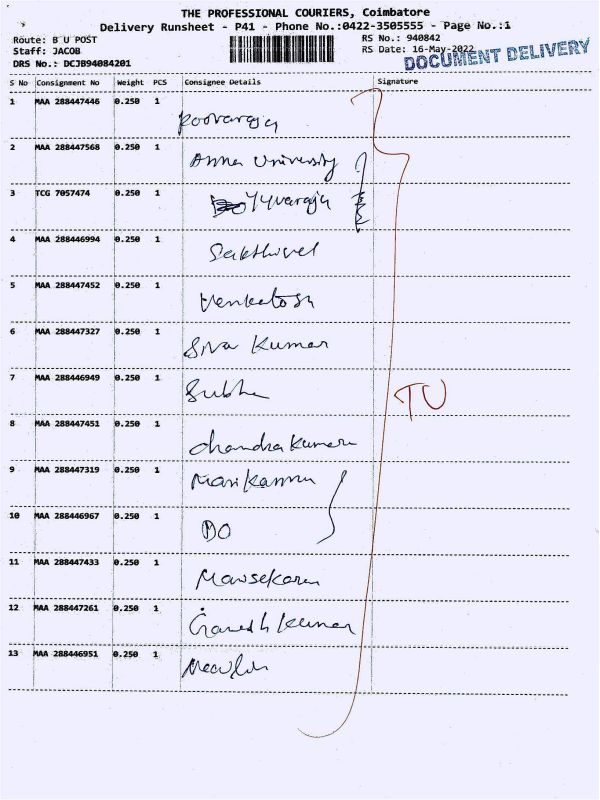 THE PROFESSIONAL COURIERS, Coimbatore
Delivery Runsheet - P41 - Phone No.:0422-3505555 - Page No.:1
Route: B U POST
RS No.: 940842
Staff: JACOB
RS Date: 16-May-2022
DRS No.: DCJB94084201
DOCUMENT DELIVERY
S No Consignment No Weight PCS Consignee Details Signature
1 MAA 288447446 0.250 1
Poovaraja
2 MAA 288447568 0.250 1
Anna University
3 TCG 7057474 0.250 1
Yuvaraja
4 MAA 288446994 0.250 1
Sakthivel
5 MAA 288447452 0.250 1
Venkatesh
6 MAA 288447327 0.250 1
Siva Kumar
7 MAA 288446949 0.250 1
Subha
TU
8 MAA 288447451 0.250 1
Chandrakumar
9 MAA 288447319 0.250 1
Marikannu
10 MAA 288446967 0.250 1
DO
11 MAA 288447433 0.250 1
12 MAA 288447261 0.250 1
Ganesh Kumar
13 MAA 288446951 0.250 1